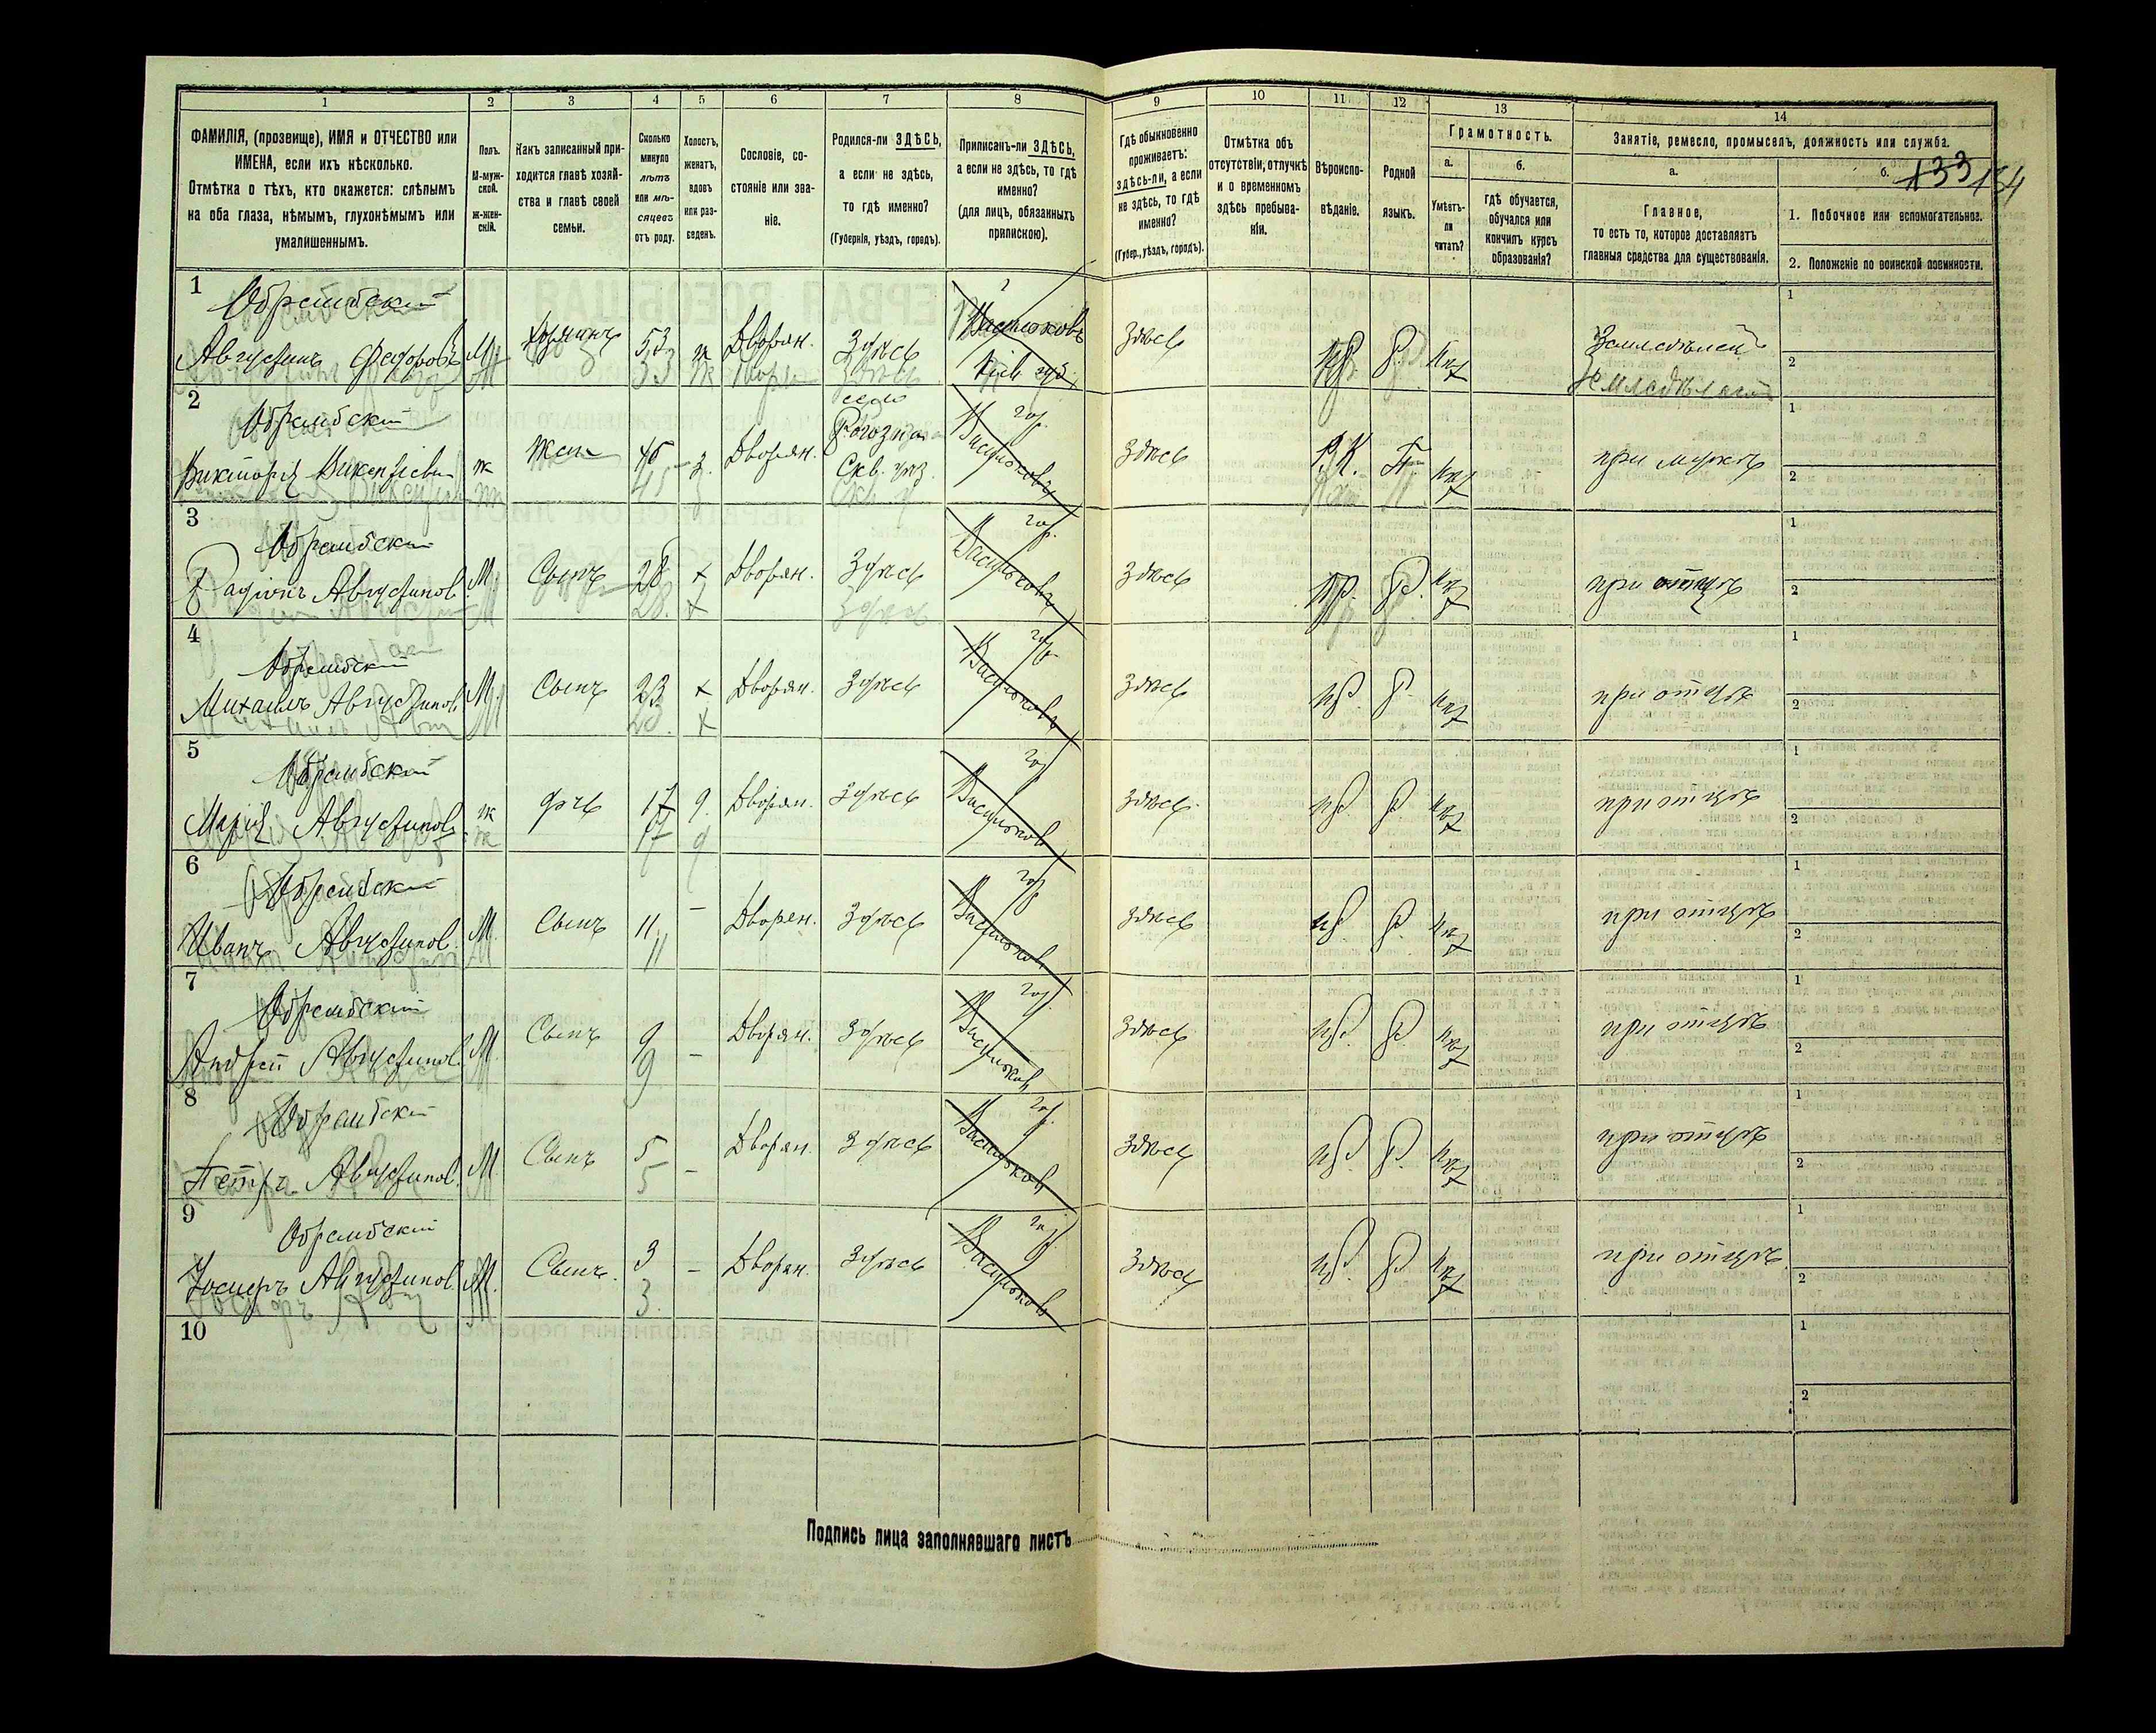 1 2 3 4 5 6 7 8 9 10 11 12 13 14
ФАМИЛІЯ, (прозвище), ИМЯ и ОТЧЕСТВО или
ИМЕНА, если ихъ нѣсколько.
Отмѣтка о тѣхъ, кто окажется: слѣпымъ
на оба глаза, нѣмымъ, глухонѣмымъ или
умалишеннымъ.
Полъ.
М-муж-
ской.
ж-жен-
скій.
Какъ записанный при-
ходится главѣ хозяй-
ства и главѣ своей
семьи.
Сколько
минуло
лѣтъ
или мѣ-
сяцевъ
отъ роду.
Холостъ,
женатъ,
вдовъ
или раз-
веденъ.
Сословіе, со-
стояніе или зва-
ніе.
Родился-ли ЗДѢСЬ,
а если не здѣсь,
то гдѣ именно?
(Губернія, уѣздъ, городъ).
Приписанъ-ли ЗДѢСЬ,
а если не здѣсь, то гдѣ
именно?
(для лицъ, обязанныхъ
припискою).
Гдѣ обыкновенно
проживаетъ:
здѣсь-ли, а если
не здѣсь, то гдѣ
именно?
(Губер., уѣздъ, городъ).
Отмѣтка объ
отсутствіи, отлучкѣ
и о временномъ
здѣсь пребыва-
ніи.
Вѣроиспо-
вѣданіе.
Родной
языкъ.
Грамотность.
а.
Умѣетъ-
ли
читать?
б.
гдѣ обучается,
обучался или
кончилъ курсъ
образованія?
Занятіе, ремесло, промыселъ, должность или служба.
а.
Главное,
то есть то, которое доставляетъ
главныя средства для существованія.
б.
133 134
1. Побочное или вспомогательное.
2. Положеніе по воинской повинности.
1
Обрембский
Августинъ Федоровъ М. хозяинъ 53 ж Дворян. Здѣсь Васильковъ Кіев. губ. Здѣсь пр. Р. Земледѣлец
2
Обрембский
Викторія Викентіевн ж жена 45 з. Дворян. село Рогозна Скв. уѣз. гор. Васильковъ Здѣсь Р.К. П. при мужѣ
3
Обрембский
Радіонъ Августинов. М. Сынъ 28 х Дворян. Здѣсь гор. Васильковъ Здѣсь пр. Р. при отцѣ
4
Обрембский
Михаилъ Августинов. М. Сынъ 23 х Дворян. Здѣсь гор. Васильковъ Здѣсь пр. Р. при отцѣ
5
Обрембский
Марія Августинов. ж дочь 17 д. Дворян. Здѣсь гор. Васильков Здѣсь пр. Р. при отцѣ
6
Обрембский
Иванъ Августинов. М. Сынъ 11 - Дворян. Здѣсь гор. Васильков Здѣсь пр. Р. при отцѣ
7
Обрембский
Андрей Августинов. М. Сынъ 9 - Дворян. Здѣсь гор. Васильков Здѣсь пр. Р. при отцѣ
8
Обрембский
Петръ Августинов. М. Сынъ 5 - Дворян. Здѣсь гор. Васильков Здѣсь пр. Р. при отцѣ
9
Обрембский
Іосифъ Августинов. М. Сынъ 3 - Дворян. Здѣсь гор. Васильков Здѣсь пр. Р. при отцѣ
10
Подпись лица заполнявшаго листъ